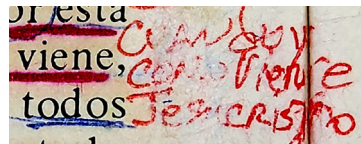 or esta
viene,
todos
Cuando y
como Viene
Jesucristo